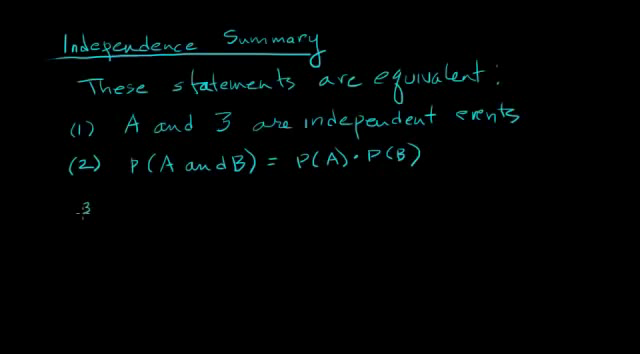 Independence Summary
These statements are equivalent:
(1) A and B are independent events
(2) P(A and B) = P(A) · P(B)
3